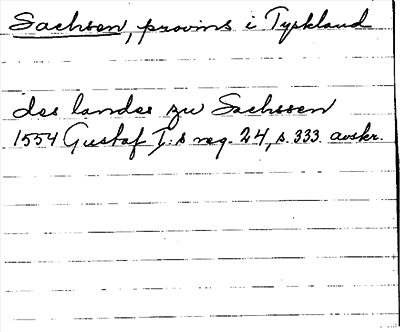 Sachsen, provins i Tyskland
des landes zu Sachssen
1554 Gustaf I:s reg. 24, s. 333. avskr.